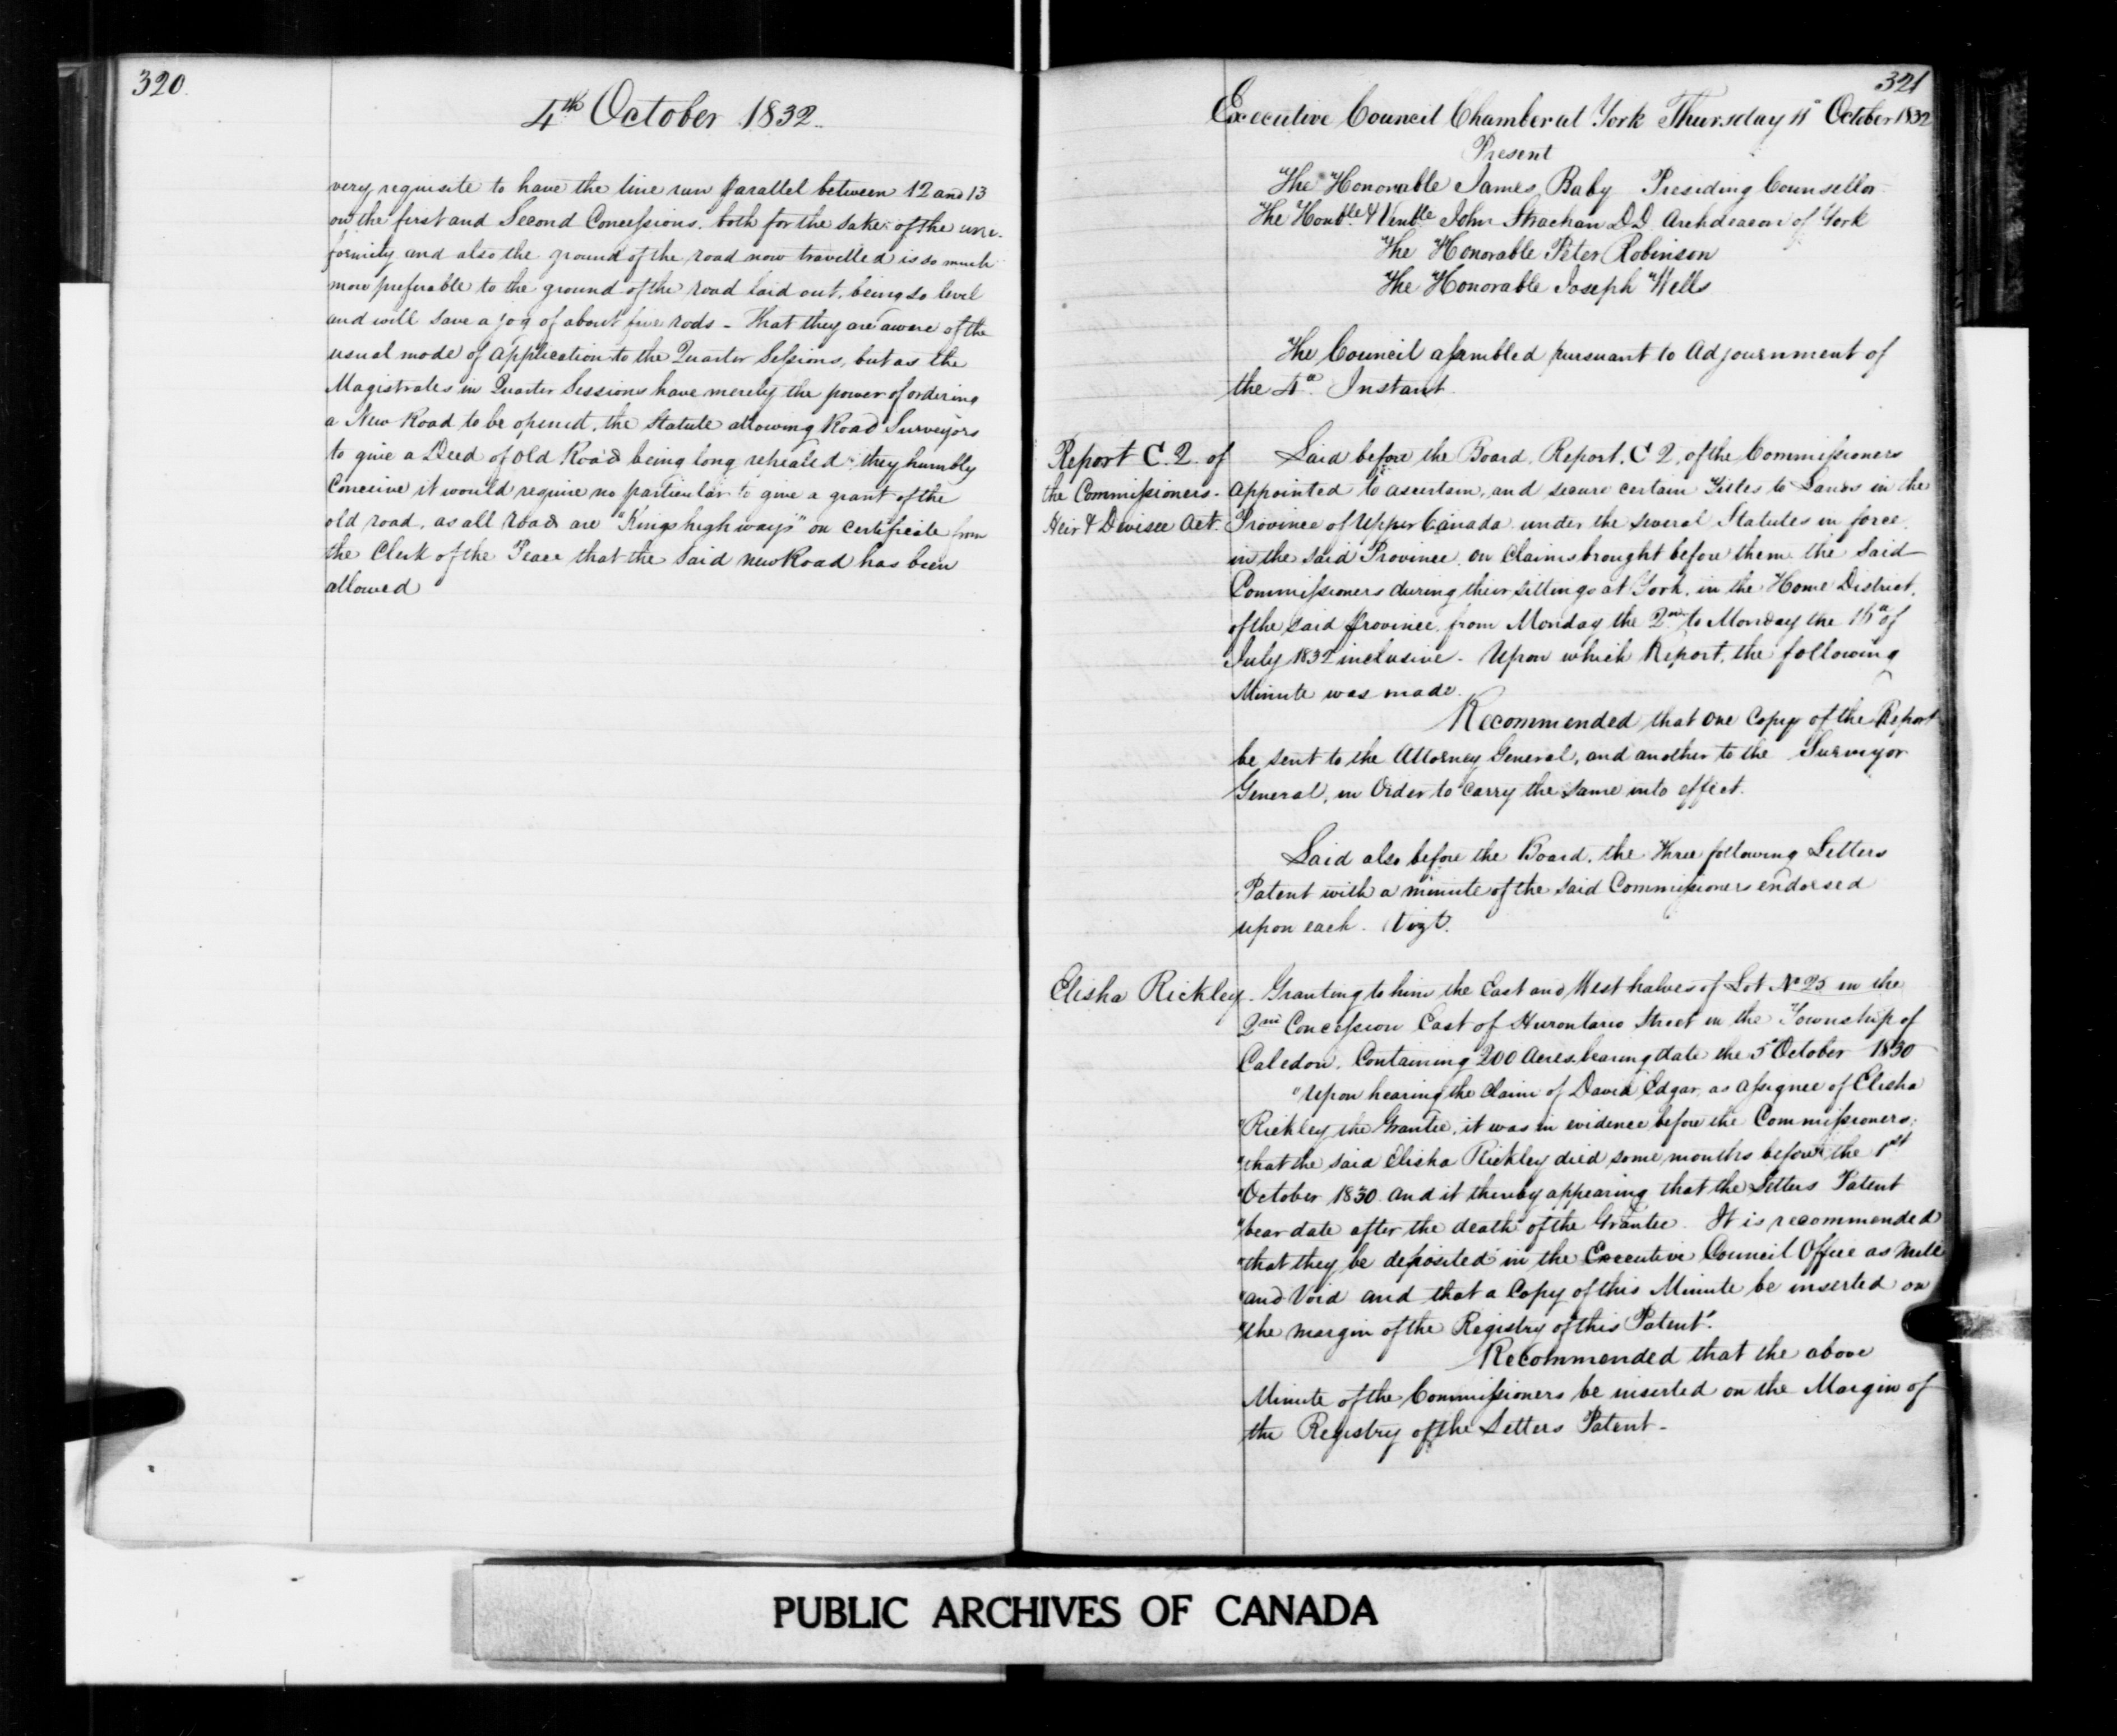 320
4th October 1832.
very requisite to have the line run parallel between 12 and 13
on the first and Second Concessions. both for the sake of the uni-
formity and also the ground of the road now travelled is so much
more preferable to the ground of the road laid out, being so level
and will save a jog of about five rods - That they are aware of the
usual mode of application to the Quarter Sessions, but as the
Magistrates in Quarter Sessions have merely the power of ordering
a New Road to be opened, the Statute allowing Road Surveyors
to give a Deed of Old Road being long repealed, they humbly
Conceive it would require no particular to give a grant of the
old road, as all roads are "Kings highways" on certificate from
the Clerk of the Peace that the said new Road has been
allowed
321
Executive Council Chamber at York Thursday 11th October 1832
Present
The Honorable James Baby Presiding Counsellor
The Honble & Venble John Strachan D.D. Archdeacon of York
The Honorable Peter Robinson
The Honorable Joseph Wells
The Council assembled pursuant to Adjournment of
the 4th Instant
Report C. 2. of
the Commissioners.
Heir & Devisee Act.
Laid before the Board, Report, C 2, of the Commissioners
appointed to ascertain, and secure certain Titles to Lands in the
Province of Upper Canada under the several Statutes in force
in the said Province on Claims brought before them the Said
Commissioners during their sittings at York, in the Home District,
of the said Province from Monday the 2nd to Monday the 16th of
July 1832 inclusive - Upon which Report, the following
Minute was made.
Recommended that One Copy of the Report
be sent to the Attorney General, and another to the Surveyor
General, in Order to carry the same into effect.
Laid also before the Board, the three following Letters
Patent with a minute of the said Commissioners endorsed
upon each. Vizt.
Elisha Rickley.
Granting to him the East and West halves of Lot No 25 in the
2nd Concession East of Hurontario Street in the Township of
Caledon, Containing 200 Acres, bearing date the 5th October 1830
"Upon hearing the Claim of David Edgar, as assignee of Elisha
"Rickley the Grantee, it was in evidence before the Commissioners;
"that the said Elisha Rickley died some months before the 1st
"October 1830 and it thereby appearing that the Letters Patent
"bear date after the death of the Grantee. It is recommended
"that they be deposited in the Executive Council Office as Null
"and Void and that a Copy of this Minute be inserted on
"the margin of the Registry of this Patent".
Recommended that the above
Minute of the Commissioners be inserted on the Margin of
the Registry of the Letters Patent -
PUBLIC ARCHIVES OF CANADA